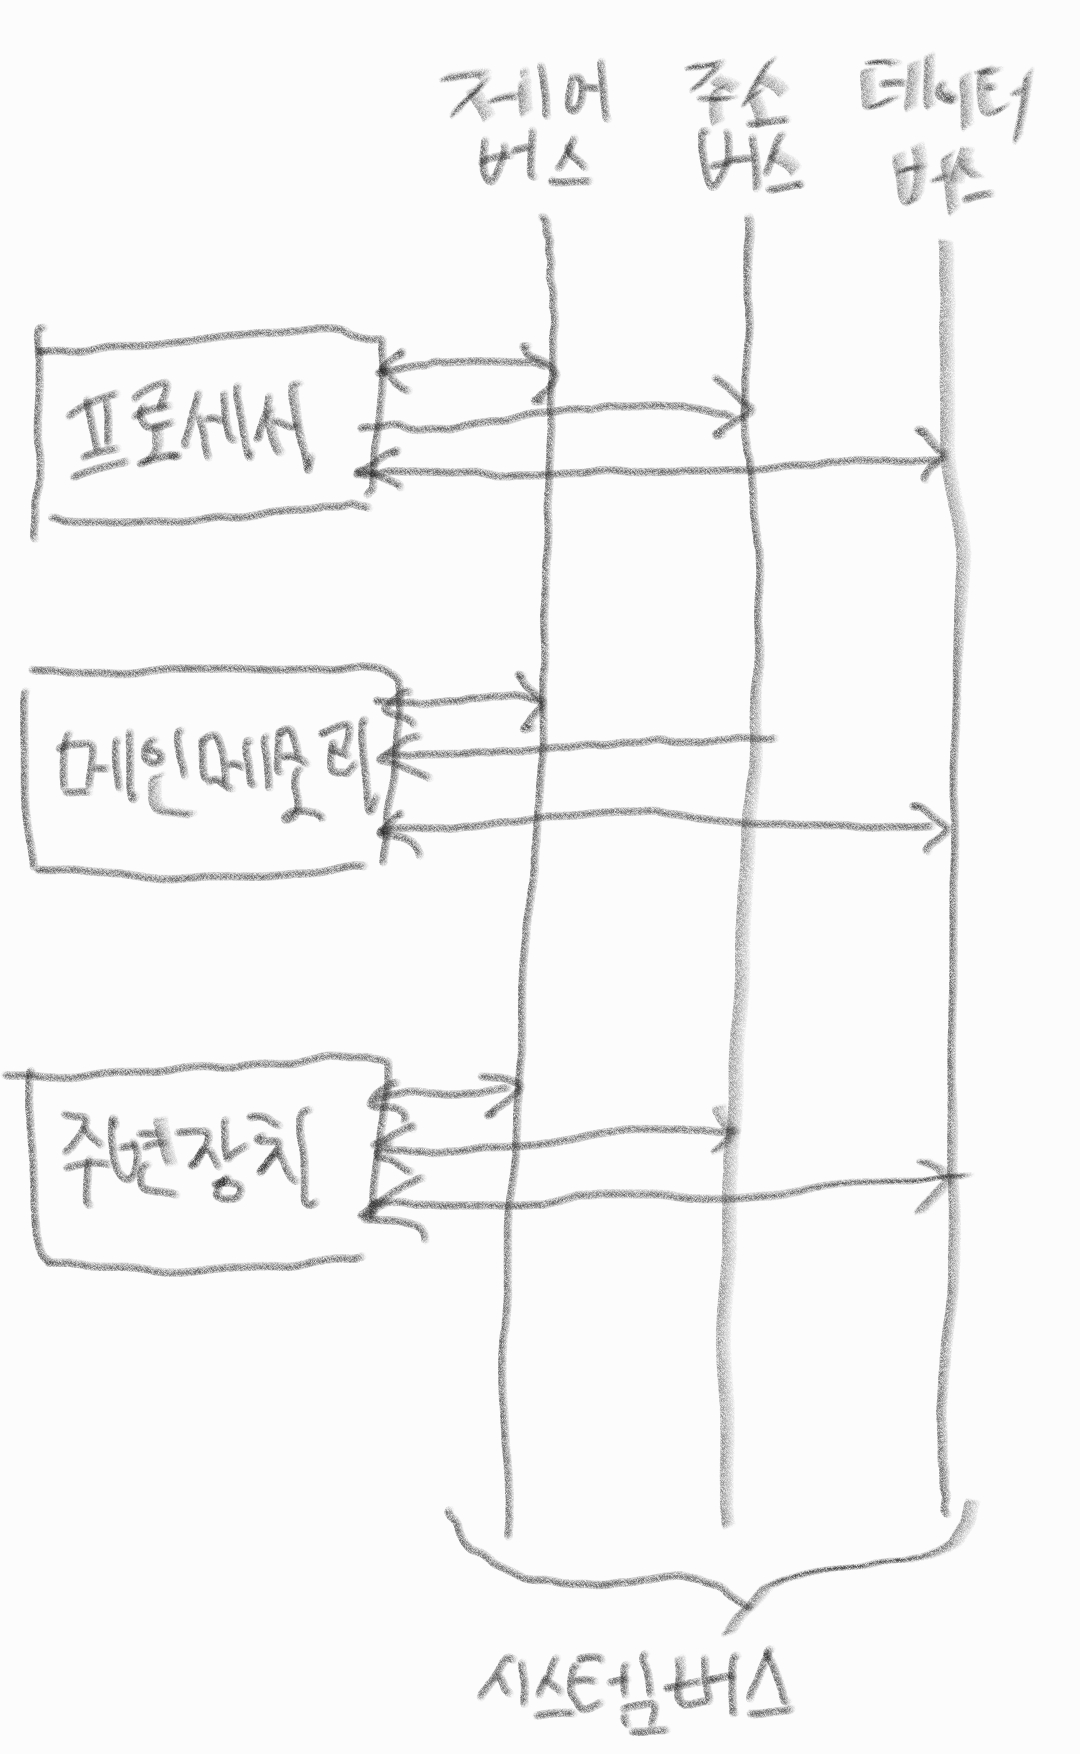 제어
버스
주소
버스
데이터
버스
프로세서
메인메모리
주변장치
시스템버스